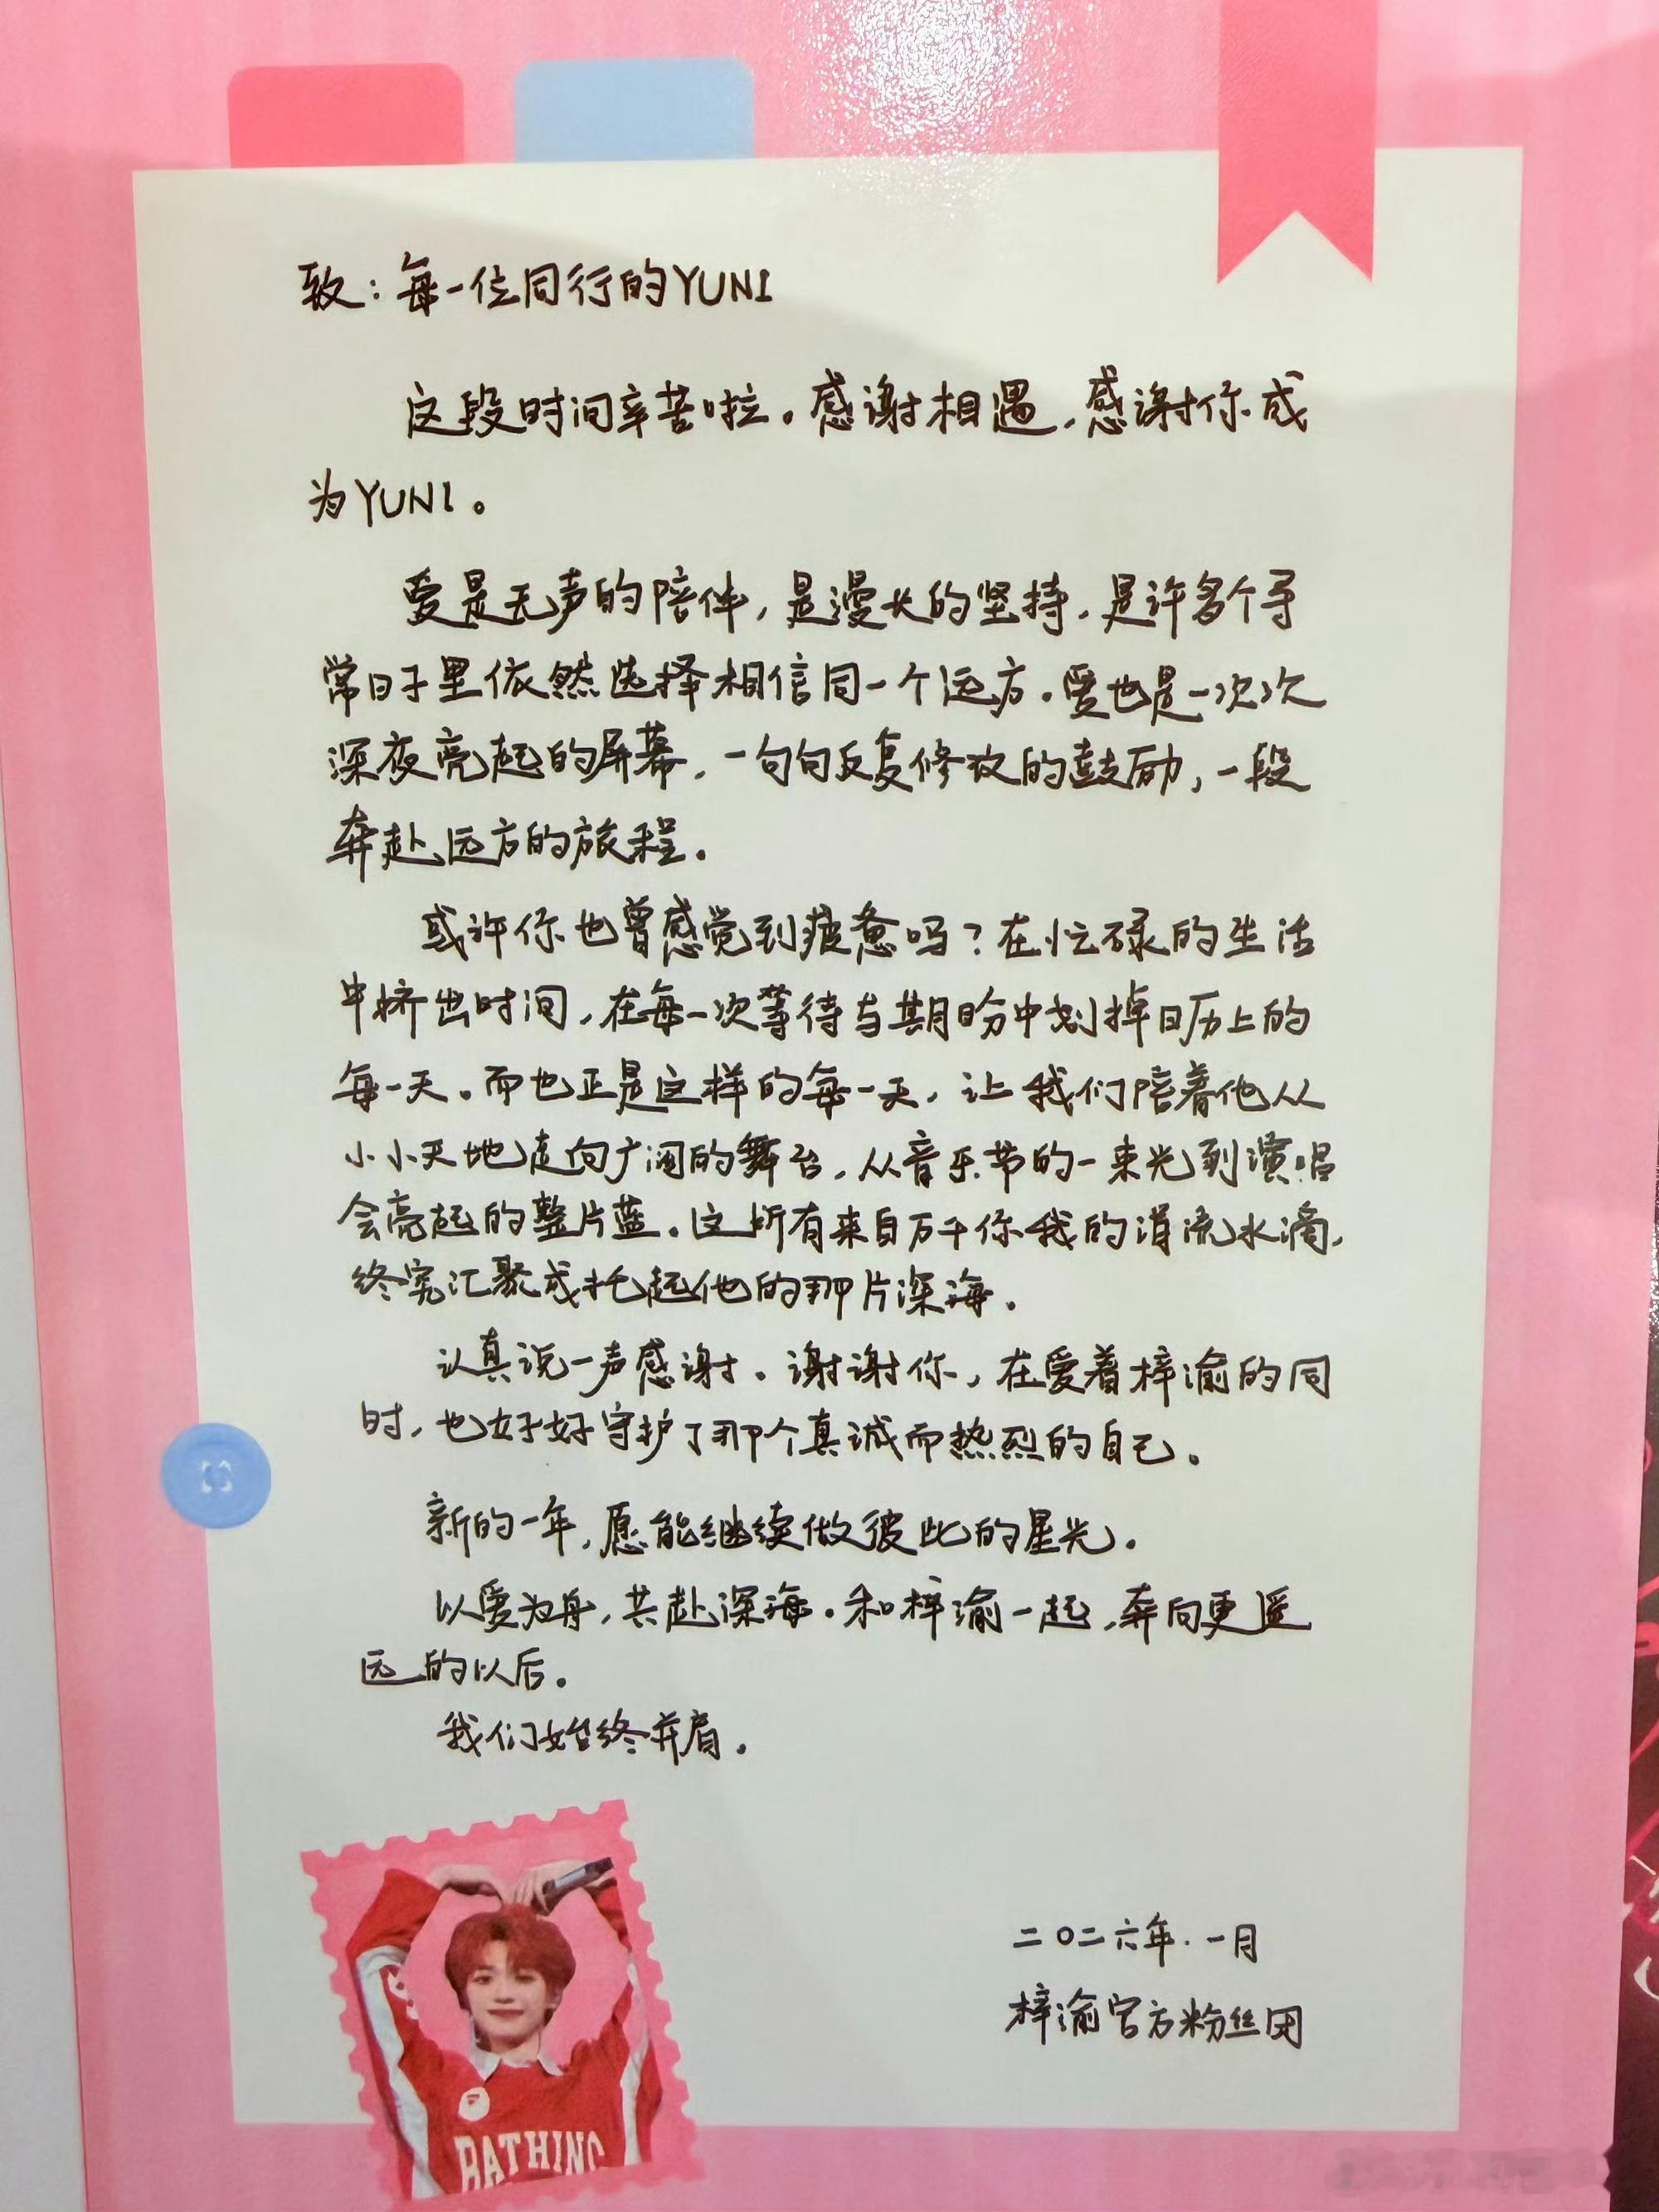 致：每一位同行的YUNI
这段时间辛苦啦。感谢相遇，感谢你成
为YUNI。
爱是无声的陪伴，是漫长的坚持，是许多个寻
常日子里依然选择相信同一个远方。爱也是一次次
深夜亮起的屏幕，一句句反复修改的鼓励，一段
奔赴远方的旅程。
或许你也曾感觉到疲惫吗？在忙碌的生活
中挤出时间，在每一次等待与期盼中划掉日历上的
每一天。而也正是这样的每一天，让我们陪着他从
小小天地走向广阔的舞台，从音乐节的一束光到演唱
会亮起的整片蓝。这所有来自万千你我的涓流水滴，
终究汇聚成托起他的那片深海。
认真说一声感谢。谢谢你，在爱着梓渝的同
时，也好好守护了那个真诚而热烈的自己。
新的一年，愿能继续做彼此的星光。
以爱为舟，共赴深海。和梓渝一起，奔向更遥
远的以后。
我们始终并肩。
二〇二六年.一月
梓渝官方粉丝团
BATHING